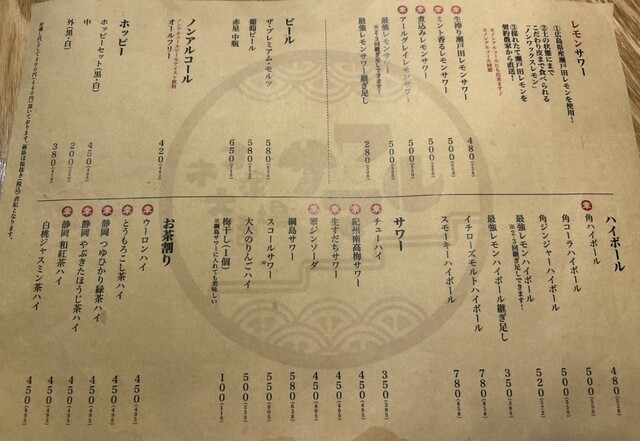 レモンサワー
①広島県産瀬戸田レモンを使用!
②土の状態にまで
こだわり皮まで食べられる
「ノンワックスレモン」
③採れたて瀬戸田レモンを
契約農家から直送!
※ノンアルコールにも出来ます♪
生搾り瀬戸田レモンサワー 480(528)
ミント香るレモンサワー 500(550)
煮込みレモンサワー 500(550)
アールグレイレモンサワー 500(550)
最強レモンサワー 500(550)
※2・3回継ぎ足しできます!
最強レモンサワー継ぎ足し 280(308)
ビール
ザ・プレミアム・モルツ 580(638)
葡萄ビール 580(638)
赤星 中瓶 650(715)
ノンアルコール
ノンアルコールビールテイスト飲料
オールフリー 420(462)
ホッピー
ホッピーセット(黒・白) 450(495)
中 200(220)
外(黒・白) 380(418)
ハイボール
角ハイボール 480(528)
角コーラハイボール 500(550)
角ジンジャーハイボール 500(550)
最強レモンハイボール 520(572)
※2・3回継ぎ足しできます!
最強レモンハイボール継ぎ足し 350(385)
イチローズモルトハイボール 780(858)
スモーキーハイボール 780(858)
サワー
チューハイ 350(385)
紀州南高梅サワー 450(495)
生すだちサワー 450(495)
翠ジンソーダ 450(495)
綱島サワー 580(638)
スコールサワー 550(605)
大人のりんごハイ 500(550)
梅干し(1個) 100(110)
※綱島サワーに入れても美味しい
お茶割り
ウーロンハイ 450(495)
とうもろこし茶ハイ 450(495)
静岡 つゆひかり緑茶ハイ 450(495)
静岡 やぶきたほうじ茶ハイ 450(495)
静岡 和紅茶ハイ 450(495)
白桃ジャスミン茶ハイ 450(495)